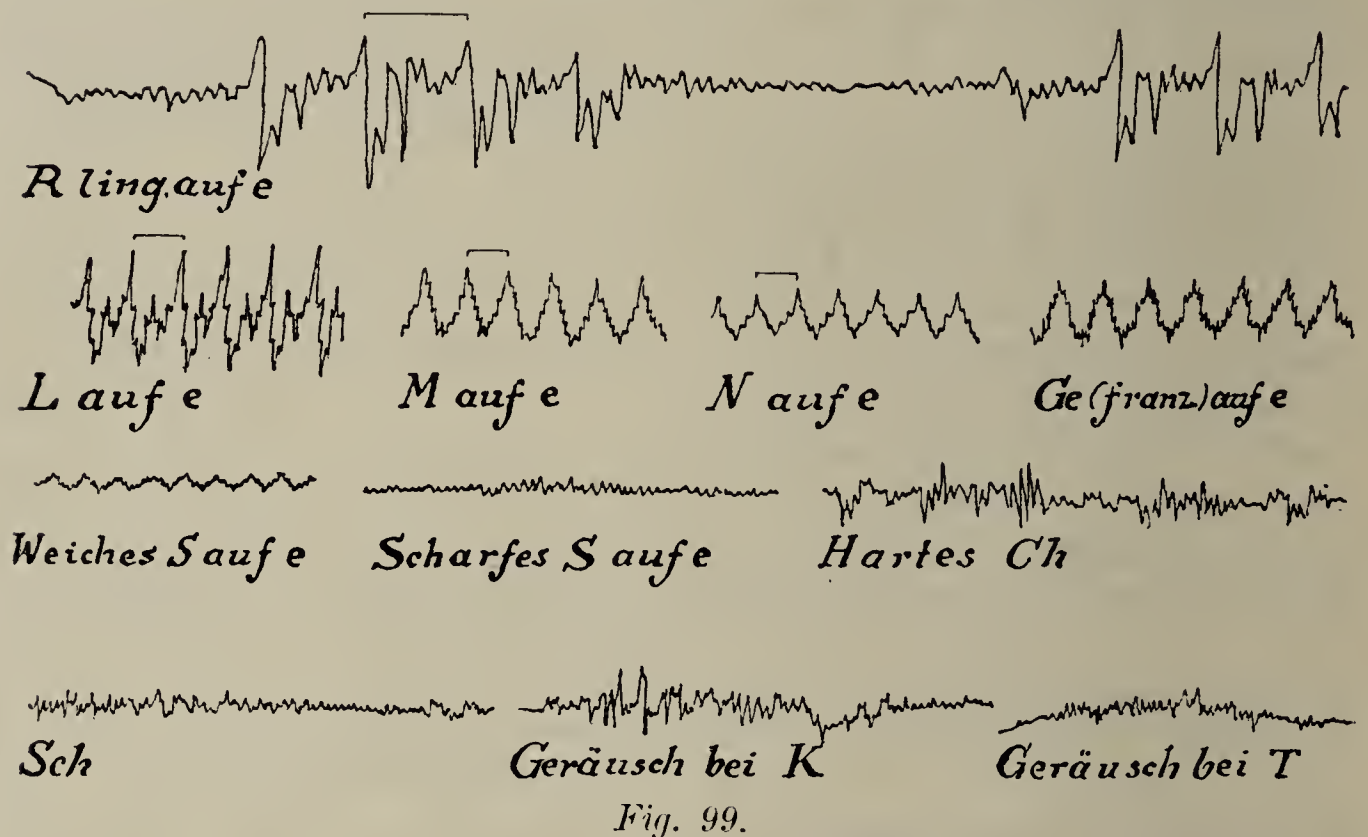 R ling. auf e
L auf e
M auf e
N auf e
Ge (franz.) auf e
Weiches S auf e
Scharfes S auf e
Hartes Ch
Sch
Geräusch bei K
Geräusch bei T
Fig. 99.